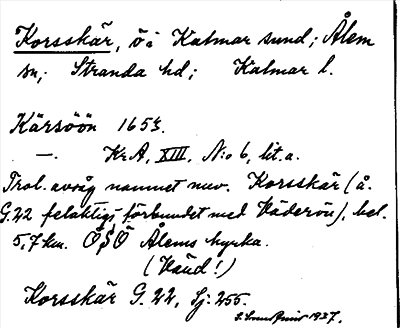 Korsskär, ö i Kalmar sund; Ålem
sn; Stranda hd; Kalmar l.
Kärsöön 1653.
—. KrA, XIII, N:o 6, lit. a.
Trol. avsåg namnet nuv. Korsskär (å
G. 22 felaktigt förbundet med Väderön), bel.
5,7 km. ÖSÖ Ålems kyrka.
(Vänd!)
Korsskär G. 22, Sj. 255.
1937.